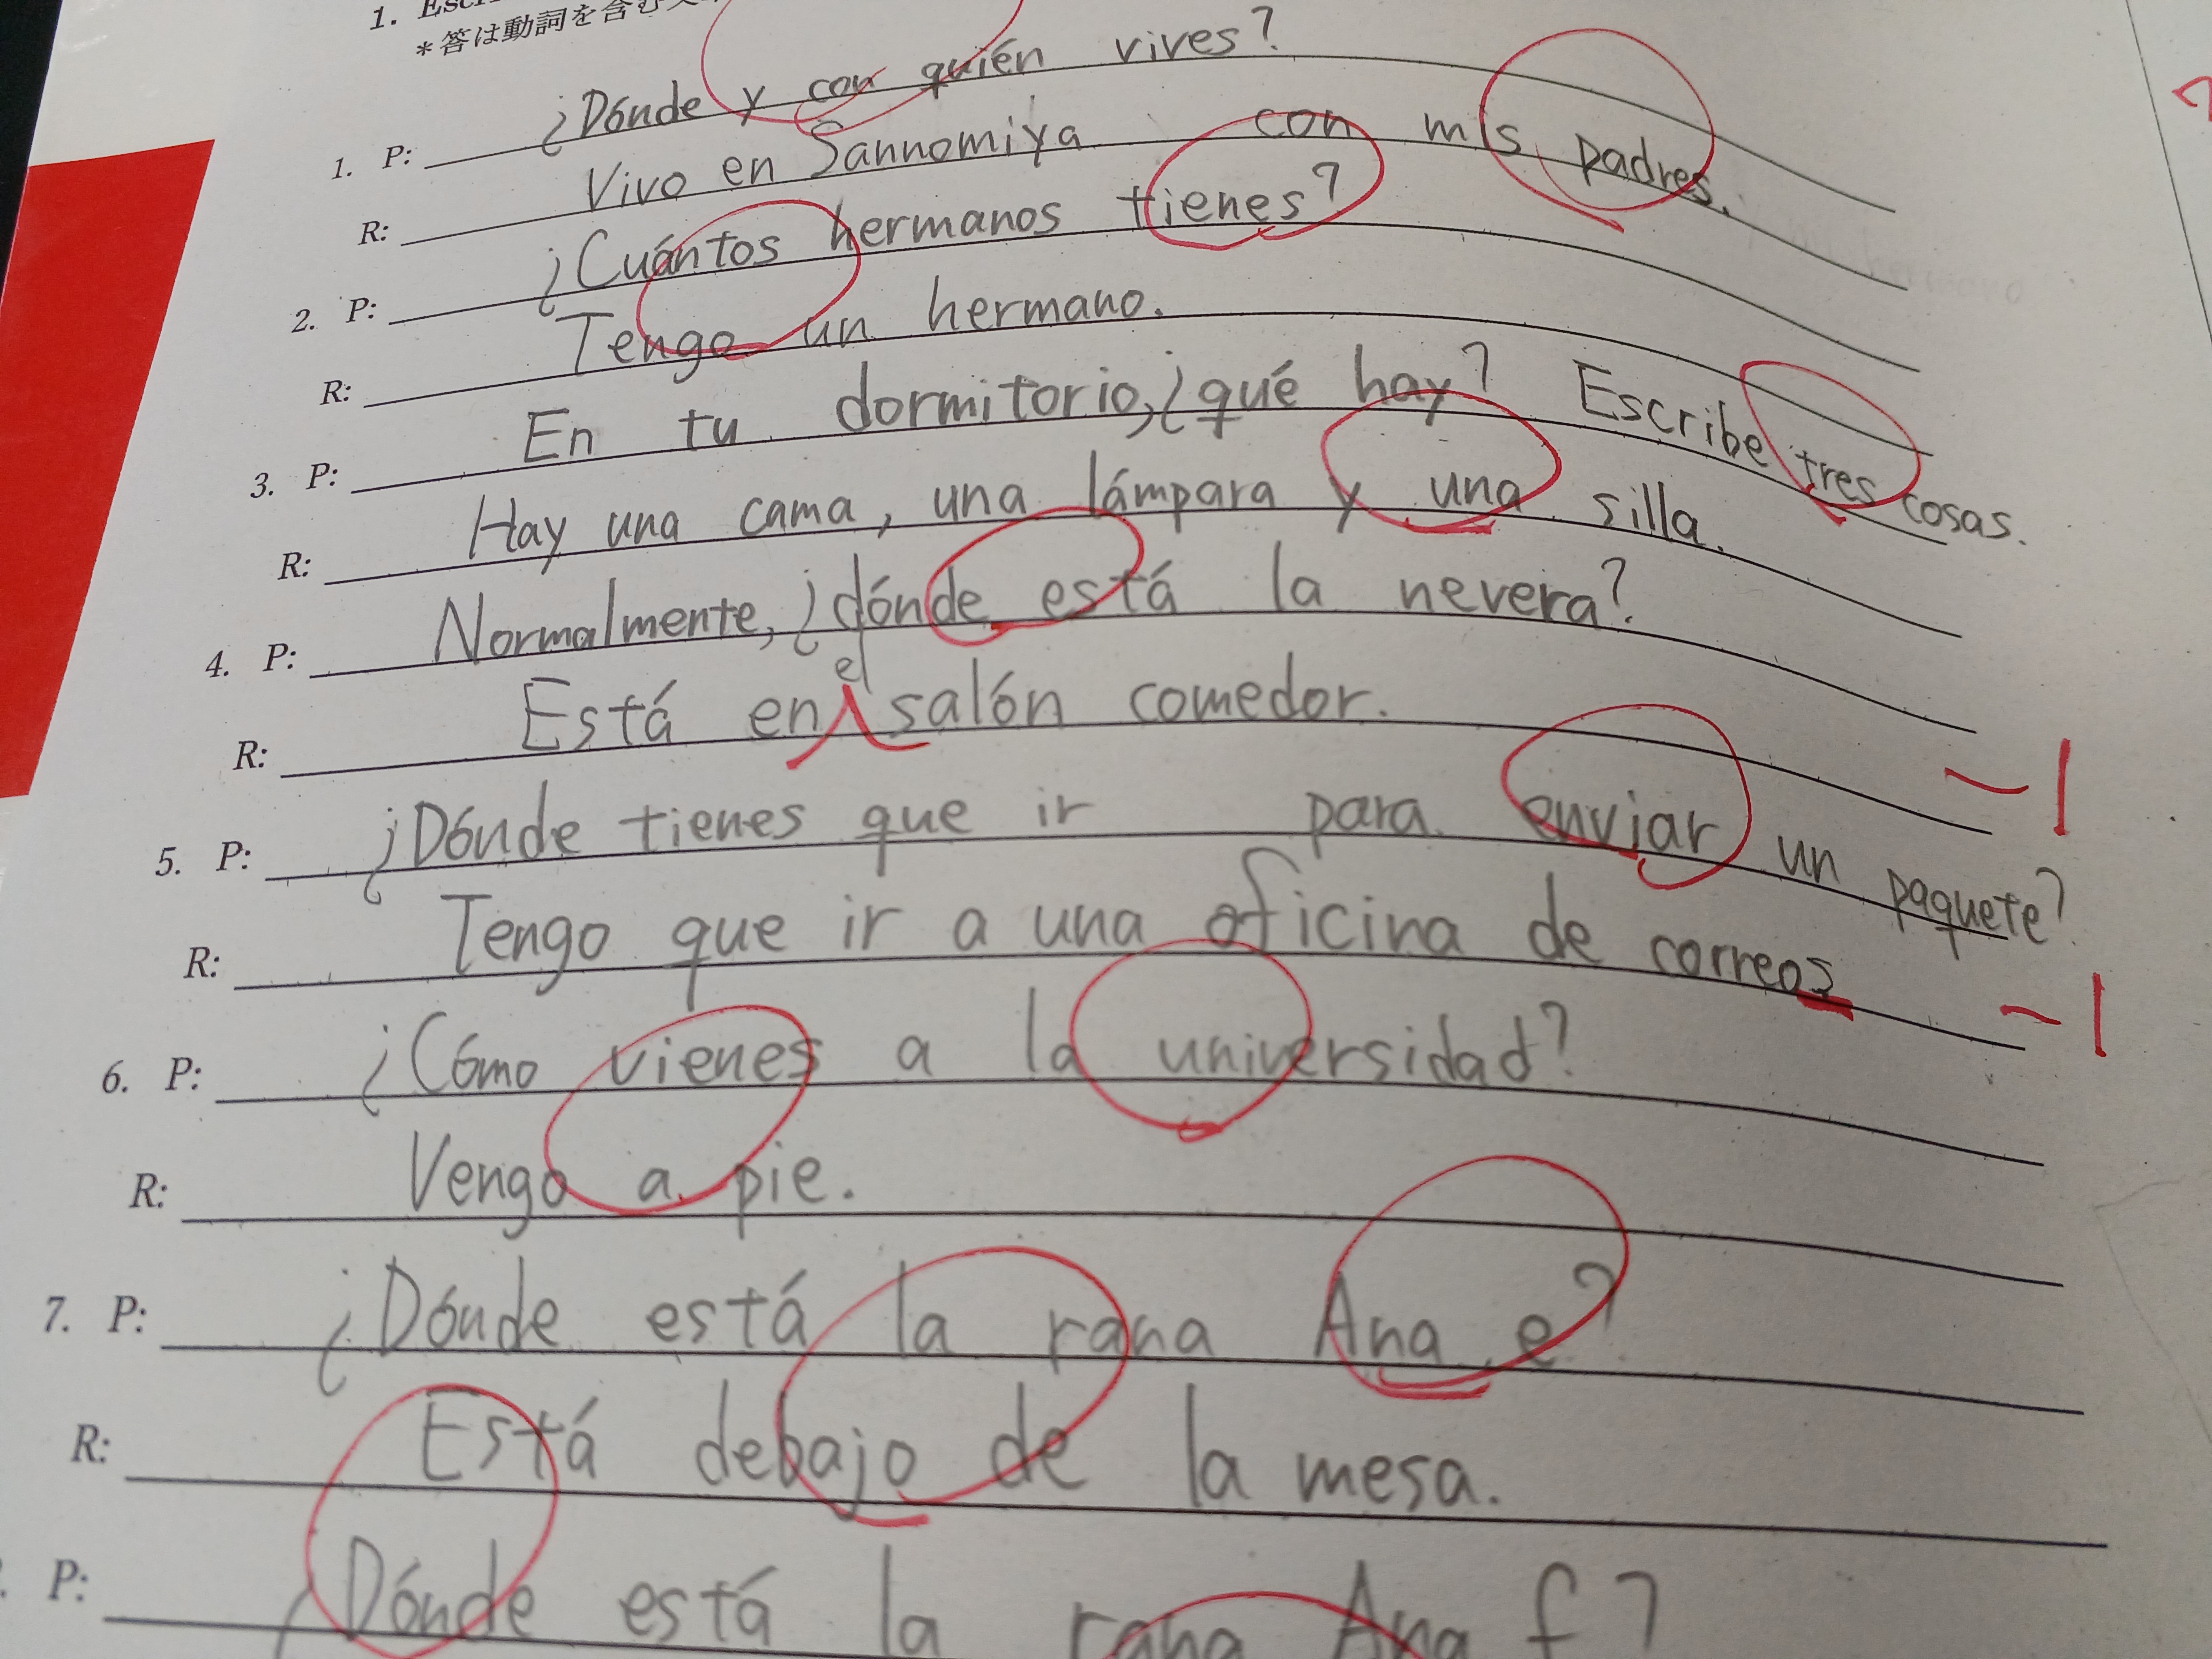 1.
*答は動詞を含む
1. P: ¿Dónde y con quién vives?
R: Vivo en Sannomiya con mis padres.
2. P: ¿Cuántos hermanos tienes?
R: Tengo un hermano.
3. P: En tu dormitorio, ¿qué hay? Escribe tres cosas.
R: Hay una cama, una lámpara y una silla.
4. P: Normalmente, ¿dónde está la nevera?
R: Está en el salón comedor.
-1
5. P: ¿Dónde tienes que ir para enviar un paquete?
R: Tengo que ir a una oficina de correos
-1
6. P: ¿Cómo vienes a la universidad?
R: Vengo a pie.
7. P: ¿Dónde está la rana Ana e?
R: Está debajo de la mesa.
P: ¿Dónde está la rana Ana f?